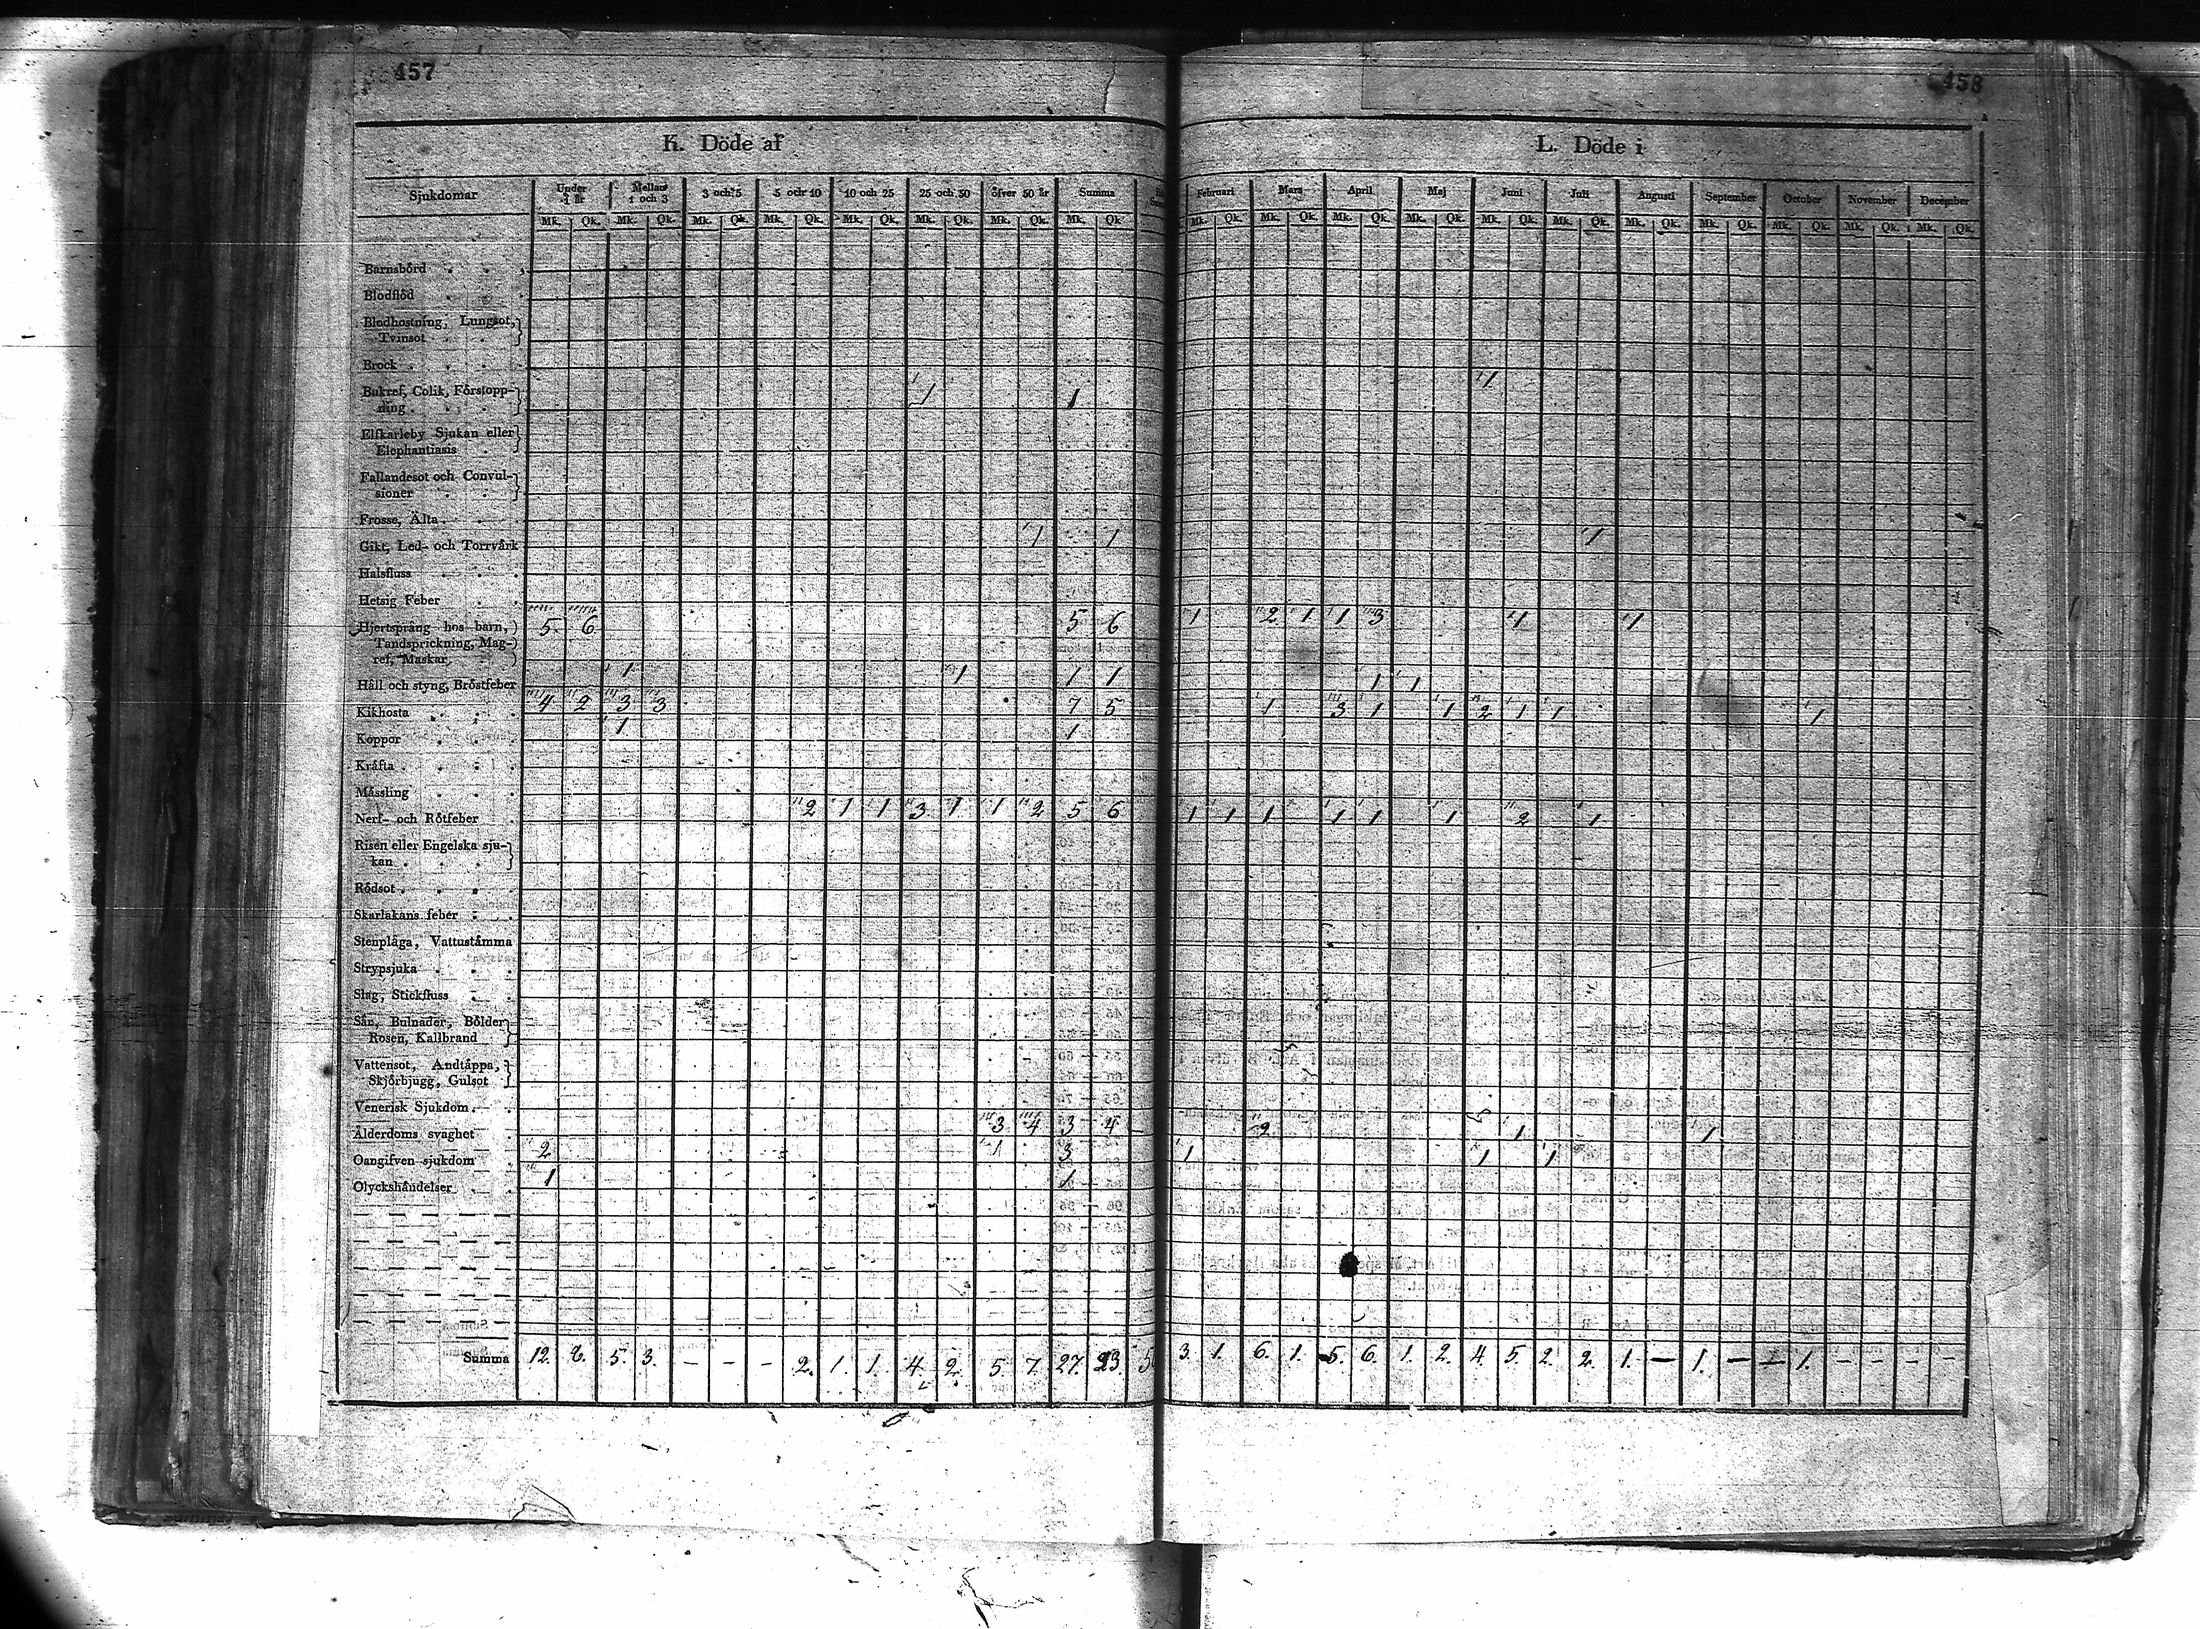 457
458
K. Döde af
L. Döde i
Sjukdomar Under 1 år Mellan 1 och 3 3 och 5 5 och 10 10 och 25 25 och 50 öfver 50 år Summa Februari Mars April Maj Juni Juli Augusti September October November December
Mk. Qk. Mk. Qk. Mk. Qk. Mk. Qk. Mk. Qk. Mk. Qk. Mk. Qk. Mk. Qk. Mk. Qk. Mk. Qk. Mk. Qk. Mk. Qk. Mk. Qk. Mk. Qk. Mk. Qk. Mk. Qk. Mk. Qk. Mk. Qk. Mk. Qk.
Barnsbörd
Blodflöd
Blodhostning, Lungsot,
Tvinsot
Brock
Bukref, Colik, Förstopp- 1 1 1
ning
Elfkarleby Sjukan eller
Elephantiasis
Fallandesot och Convul-
sioner
Frosse, Älta
Gikt, Led- och Torrvärk 1 1 1
Halsfluss
Hetsig Feber
Hjertsprång hos barn, 5 6 5 6 1 2 1 1 3 1 1
Tandsprickning, Mag-
ref, Maskar
Håll och styng, Bröstfeber 1 1 1 1 1 1
Kikhosta 4 2 3 3 7 5 1 3 1 1 2 1 1 1
Koppor 1 1
Kräfta
Mässling
Nerf- och Rötfeber 2 1 1 3 1 1 2 5 6 1 1 1 1 1 1 2 1
Risen eller Engelska sju-
kan
Rödsot
Skarlakans feber
Stenplåga, Vattustämma
Strypsjuka
Slag, Stickfluss
Sån, Bulnader, Bölder
Rosen, Kallbrand
Vattensot, Andtäppa,
Skjörbjugg, Gulsot
Venerisk Sjukdom
Ålderdoms svaghet 3 4 3 4 2 1 1
Oangifven sjukdom 2 1 3 1 1 1
Olyckshändelser 1 1
Summa 12. 8. 5. 3. - - - 2. 1. 1. 4. 2. 5. 7. 27. 23. 5 3. 1. 6. 1. 5. 6. 1. 2. 4. 5. 2. 2. 1. - 1. - - 1. - - - -